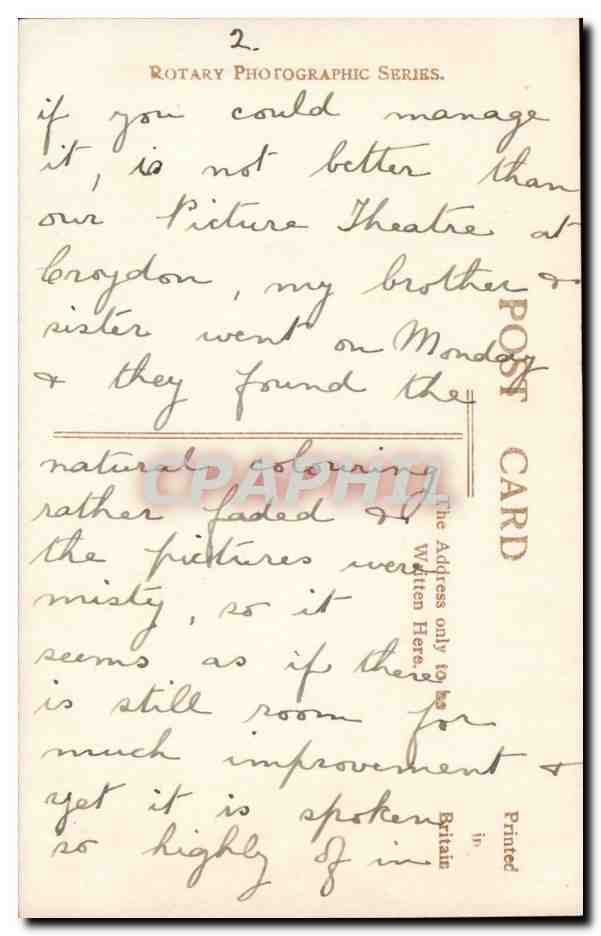 2.
ROTARY PHOTOGRAPHIC SERIES.
if you could manage
it, is not better than
our Picture Theatre at
Croydon, my brother &
sister went on Monday
& they found the
natural colouring
rather faded &
the pictures were
misty, so it
seems as if there
is still room for
much improvement &
yet it is spoken
so highly of in
POST CARD
The Address only to be
Written Here.
Printed
in
Britain
CPAPHIL